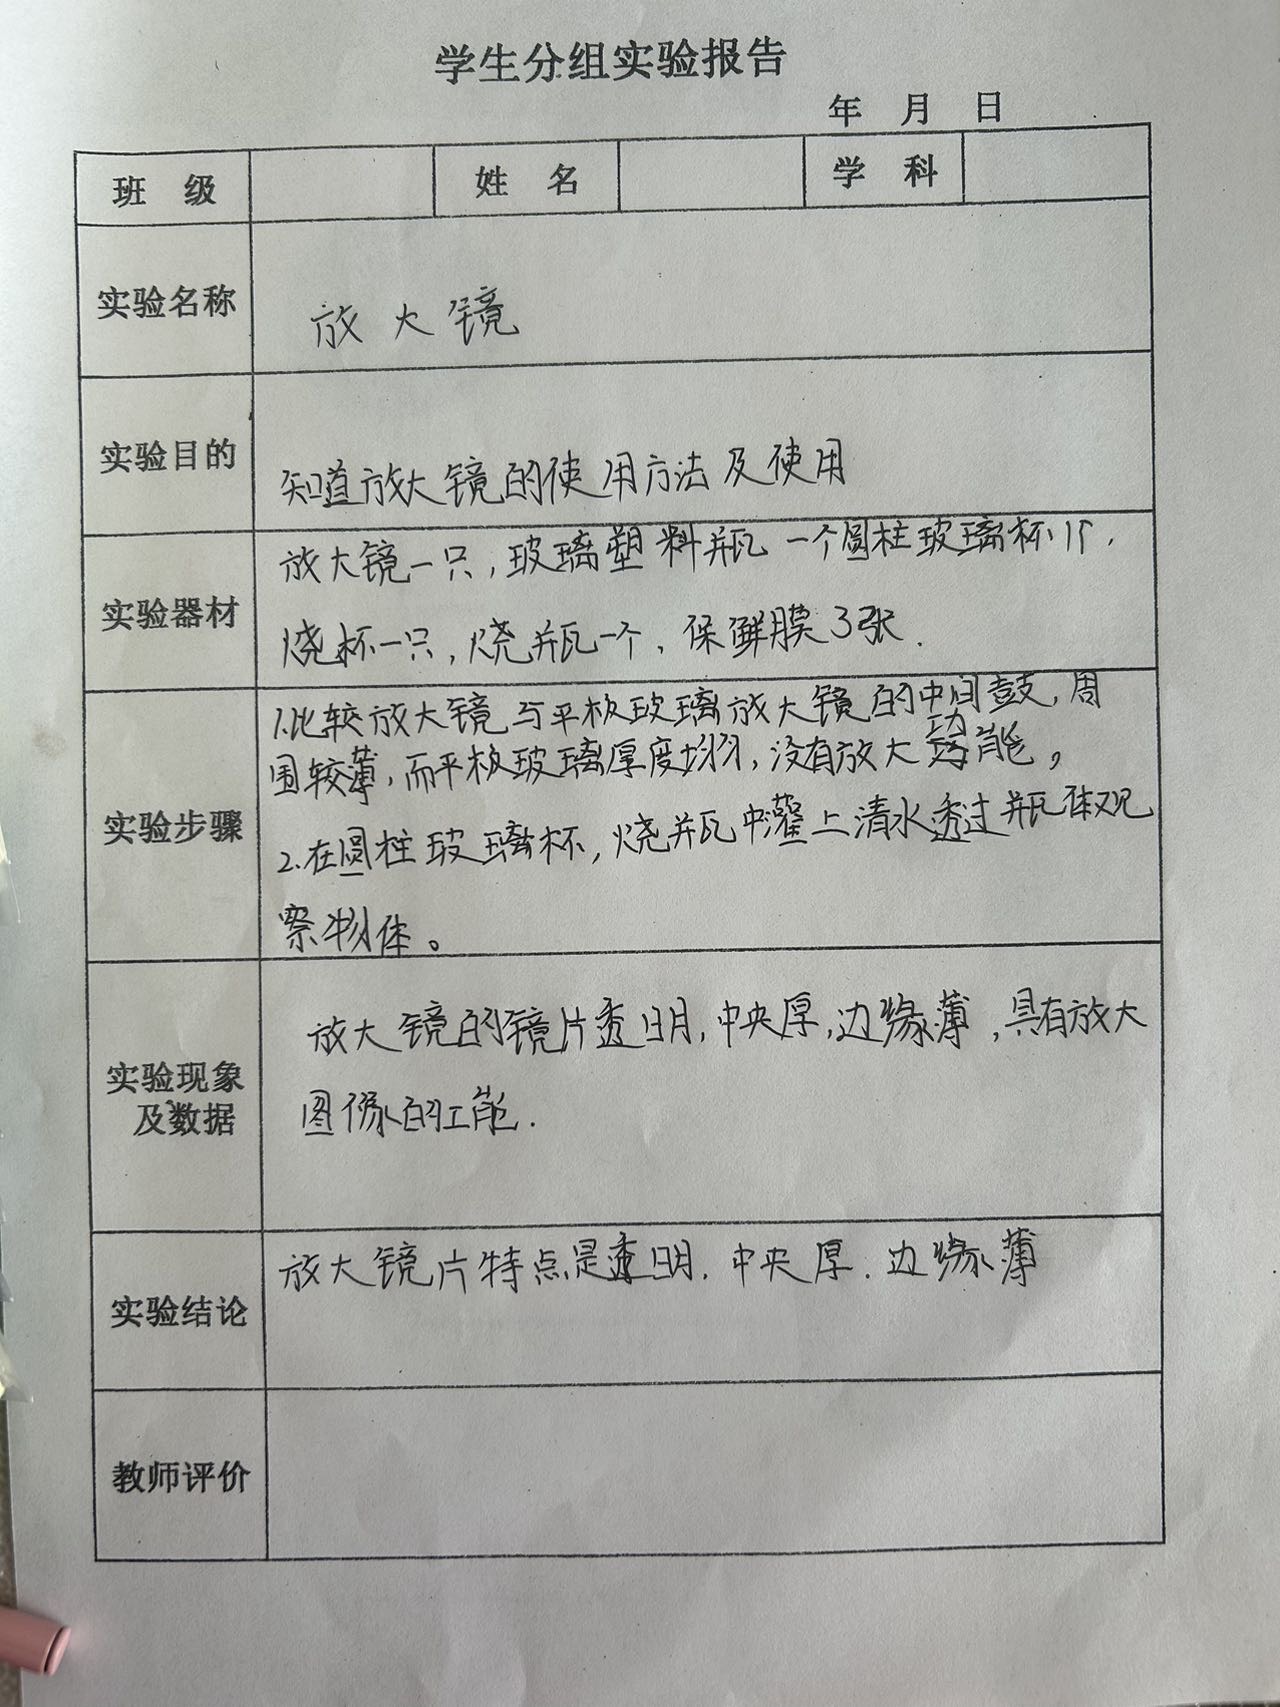 学生分组实验报告
年 月 日
班 级 姓 名 学 科
实验名称 放大镜
实验目的 知道放大镜的使用方法及使用
放大镜一只,玻璃塑料瓶一个圆柱玻璃杯1个,
实验器材
烧杯一只,烧瓶一个,保鲜膜3张.
1.比较放大镜与平板玻璃放大镜的中间鼓,周
围较薄,而平板玻璃厚度均匀,没有放大功能。
实验步骤
2.在圆柱玻璃杯,烧瓶中灌上清水透过瓶体观
察物体。
放大镜的镜片透明,中央厚,边缘薄,具有放大
实验现象
及数据
图像的工能.
放大镜片特点是透明.中央厚.边缘薄
实验结论
教师评价